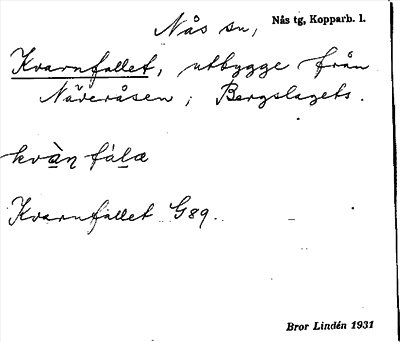 Nås sn, Nås tg, Kopparb. l.
Kvarnfallet, utbygge från
Näveråsen, Bergslagets.
kvàn fala
Kvarnfallet G89.
Bror Lindén 1931